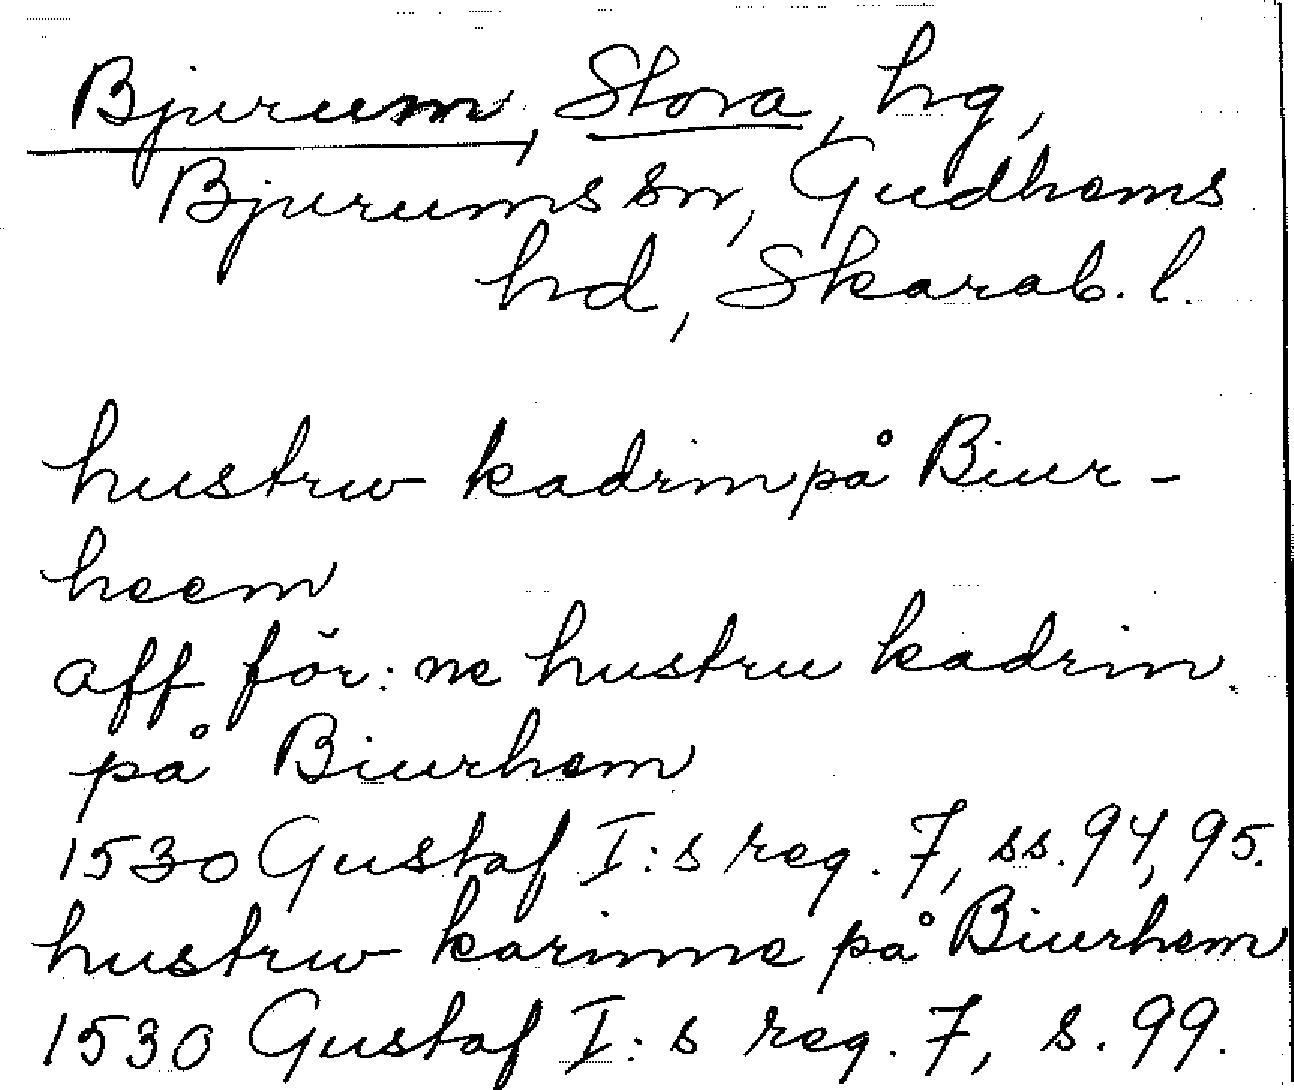 Bjurum, Stora, hg,
Bjurums sn, Gudhems
hd, Skarab. l.
hustrw kadrin på Biur-
heem
aff för: ne hustru kadrin
på Biurhem
1530 Gustaf I:s reg. 7, ss. 94, 95.
hustrw karinne på Biurhem
1530 Gustaf I:s reg. 7, s. 99.